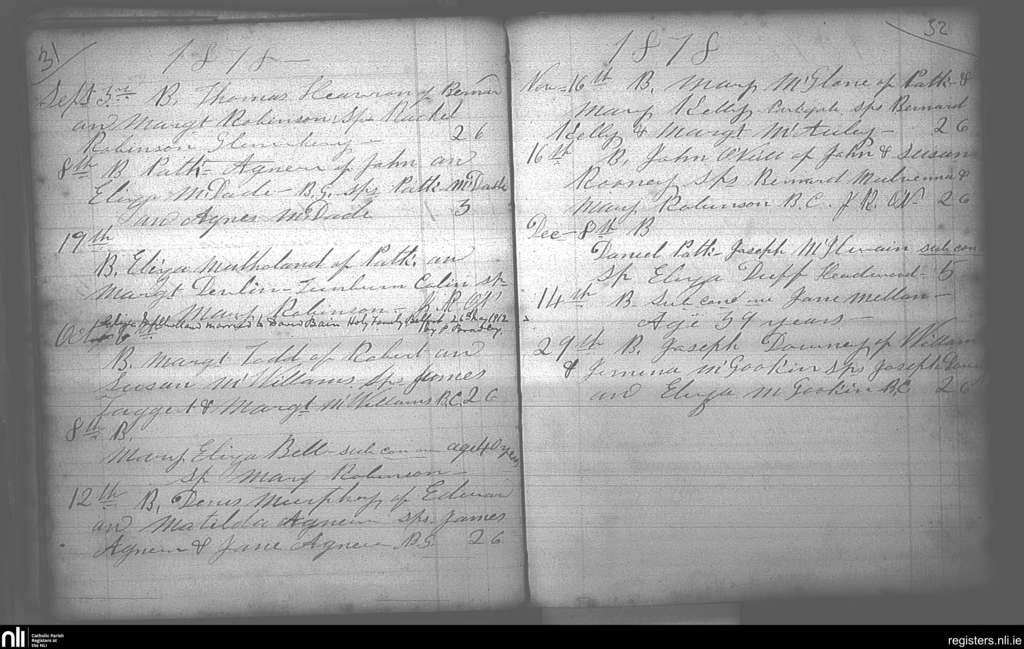 31
1878
Sept 3rd B. Thomas Hearron of Bernar
an Margt Robinson Sps Rachel
Robinson 2 6
8th B Patk Agnew of John an
Eliza McDade B.G. Sps Patk McDade
and Agnes McDade 3
19th
B. Eliza Mulholand of Patk. an
Margt Devlin Colin sp
Mary Robinson
married to David Bain Holy Family Belfast 26 May 1912
Oct 6th by P Bradley
B. Margt Todd of Robert an
Susan McWilliams Sps James
Taggert & Margt McWilliams B.C. 2 6
8th B.
Mary Eliza Bell sub con age 40 years
Sp Mary Robinson
12th B, Denis Murphy of Edwar
an Matilda Agnew Sps James
Agnew & Jane Agnew B.G. 2 6
32
1878
Nov 16th B. Mary McGlone of Patk &
Mary Kelly Sps Bernard
Kelly & Margt McAuley 2 6
16th B. John O'Neill of John & Susan
Rooney Sps Bernard &
Mary Robinson B.C. 2 6
Dec 8th B
Daniel Patk Joseph McIlwain sub con
Sp Eliza Duff 5
14th B. Sub cond Jane Mellon
Age 59 years
29th B. Joseph Downey of William
& Jemima McGookin Sps Joseph
an Eliza McGookin B.C. 2 6
nli
Catholic Parish
Registers at
the NLI
registers.nli.ie